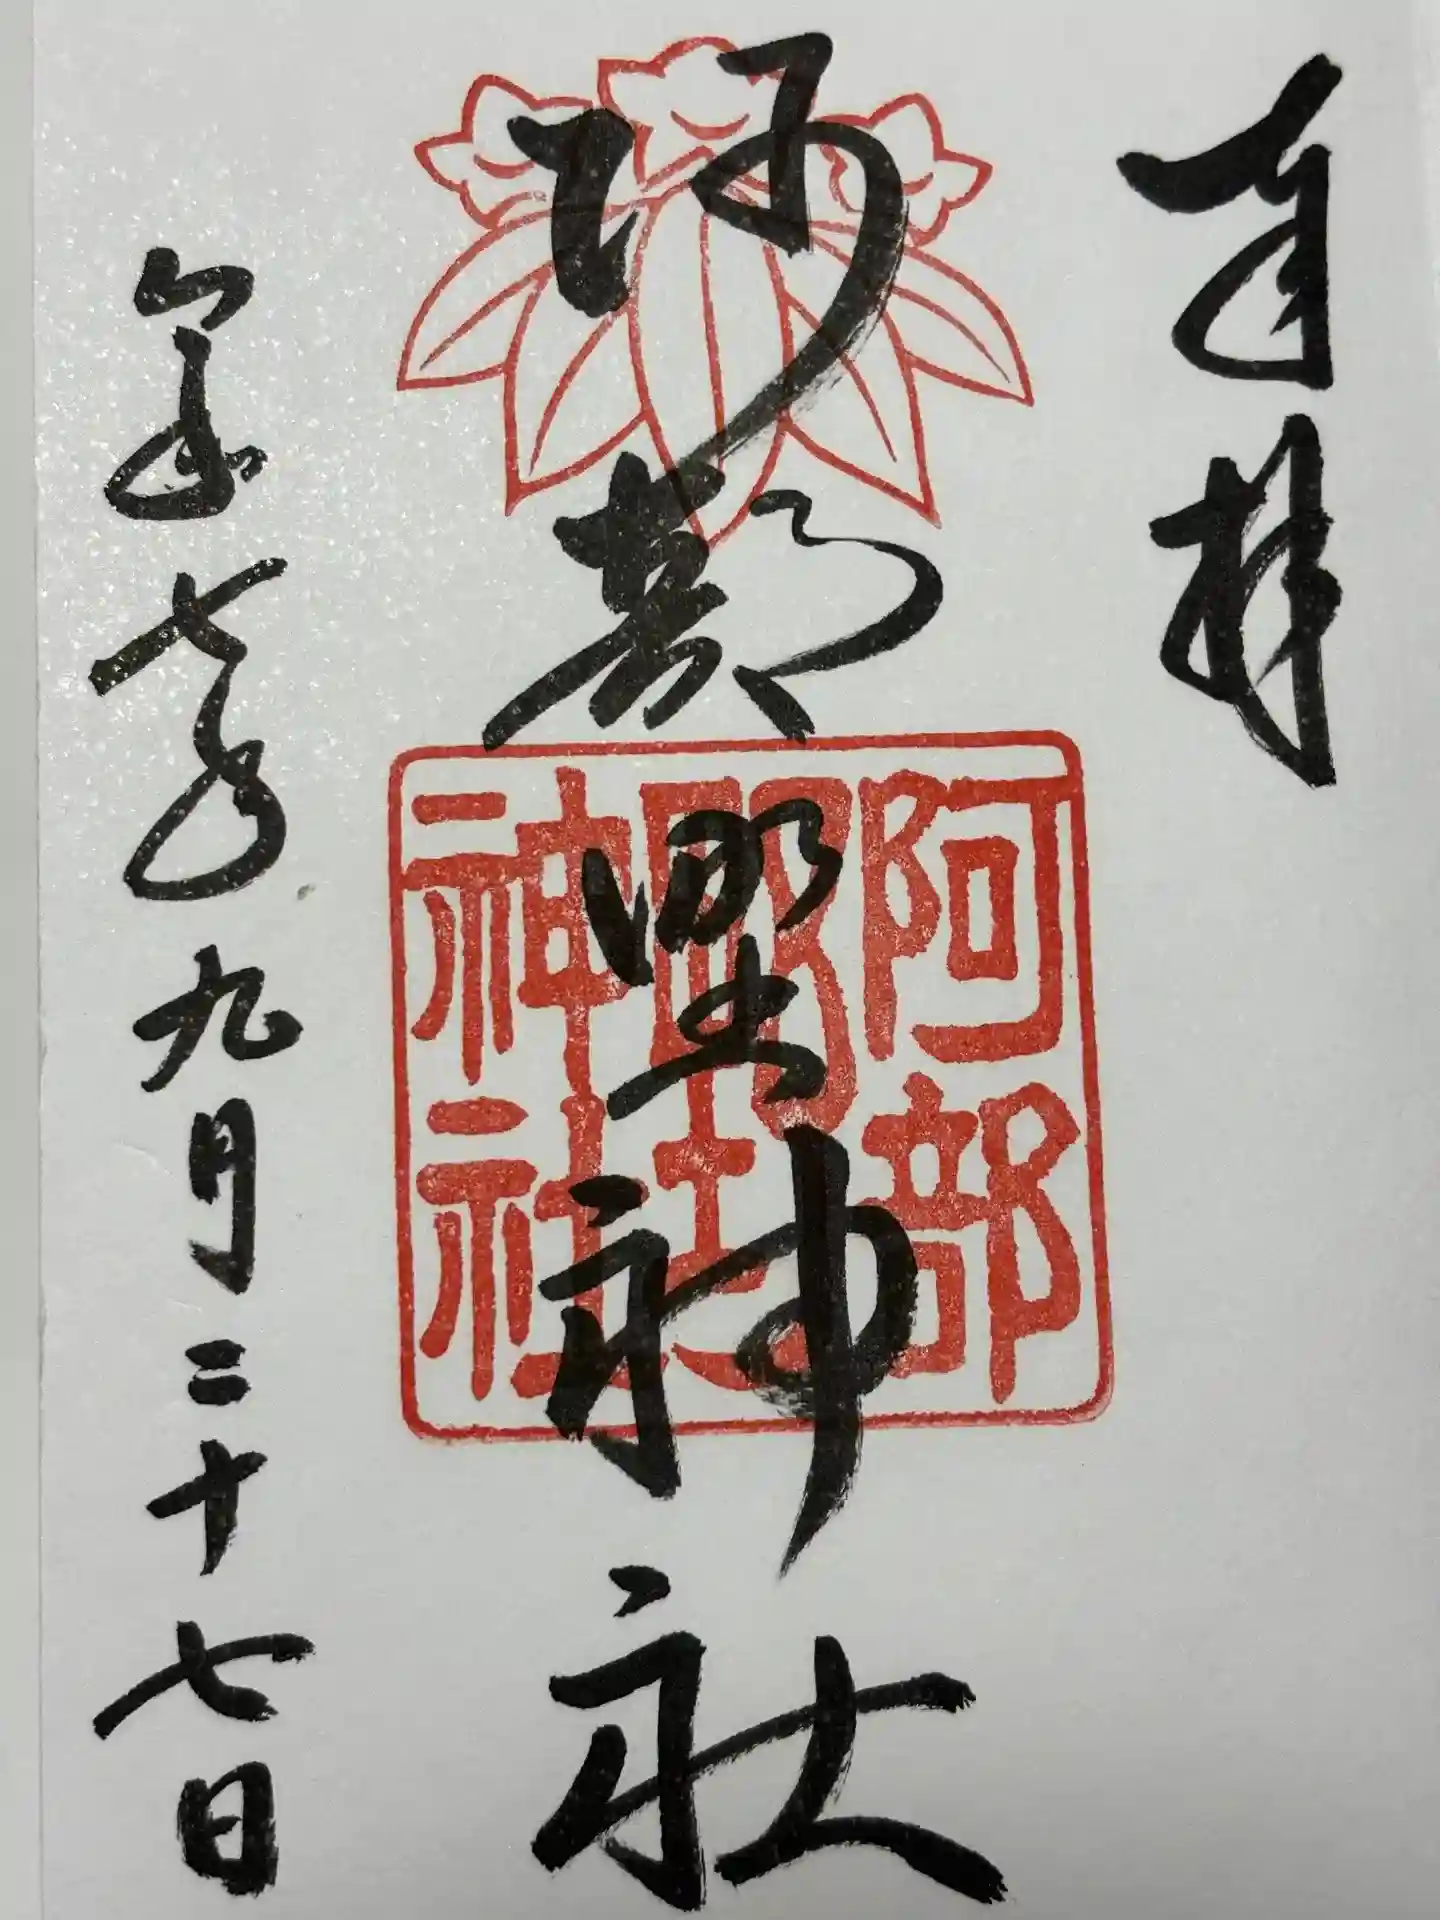 奉拝
阿部野神社
阿部
野
神社
令和七年九月二十七日